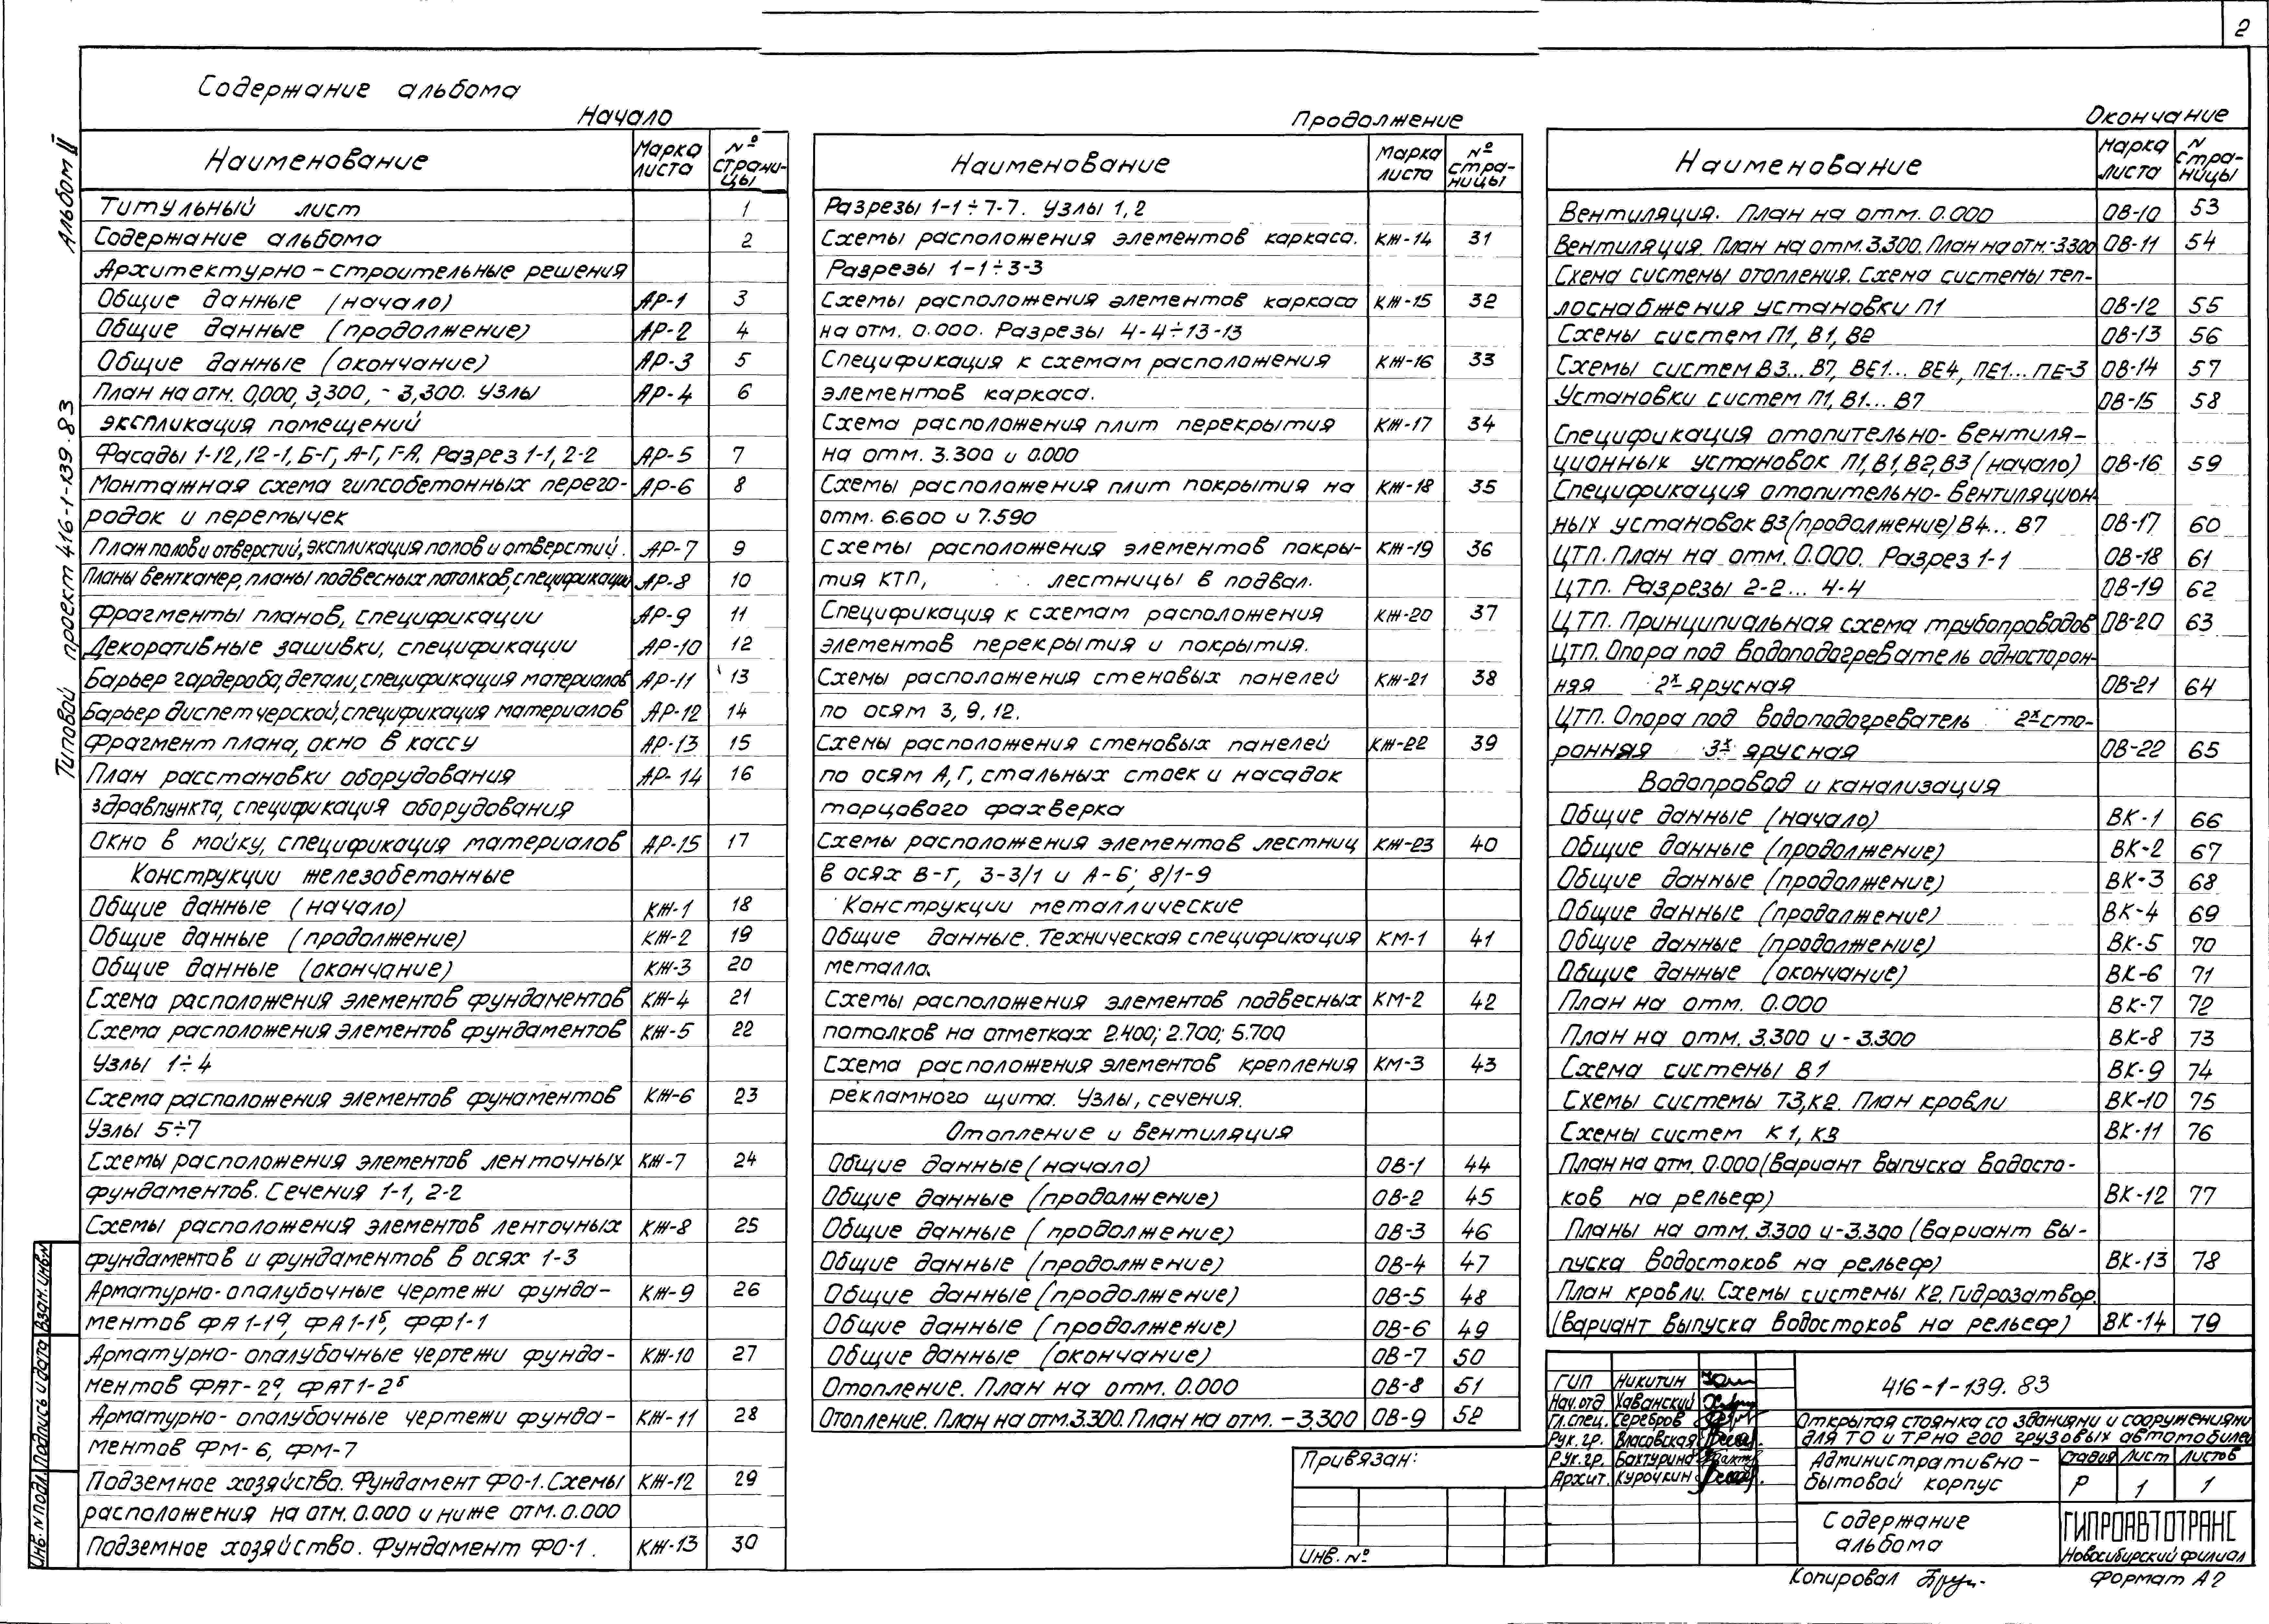 2
Содержание альбома
Начало
Наименование Марка листа № страницы
Титульный лист 1
Содержание альбома 2
Архитектурно-строительные решения
Общие данные (начало) АР-1 3
Общие данные (продолжение) АР-2 4
Общие данные (окончание) АР-3 5
План на отм. 0,000, 3,300, -3,300. Узлы АР-4 6
экспликация помещений
Фасады 1-12, 12-1, Б-Г, А-Г, Г-А. Разрез 1-1, 2-2 АР-5 7
Монтажная схема гипсобетонных перего- АР-6 8
родок и перемычек
План полов и отверстий, экспликация полов и отверстий. АР-7 9
Планы венткамер, планы подвесных потолков, спецификации АР-8 10
Фрагменты планов, спецификации АР-9 11
Декоративные зашивки, спецификации АР-10 12
Барьер гардероба, детали, спецификация материалов АР-11 13
Барьер диспетчерской, спецификация материалов АР-12 14
Фрагмент плана, окно в кассу АР-13 15
План расстановки оборудования АР-14 16
здравпункта, спецификация оборудования
Окно в мойку, спецификация материалов АР-15 17
Конструкции железобетонные
Общие данные (начало) КЖ-1 18
Общие данные (продолжение) КЖ-2 19
Общие данные (окончание) КЖ-3 20
Схема расположения элементов фундаментов КЖ-4 21
Схема расположения элементов фундаментов КЖ-5 22
Узлы 1÷4
Схема расположения элементов фунаментов КЖ-6 23
Узлы 5÷7
Схемы расположения элементов ленточных КЖ-7 24
фундаментов. Сечения 1-1, 2-2
Схемы расположения элементов ленточных КЖ-8 25
фундаментов и фундаментов в осях 1-3
Арматурно-опалубочные чертежи фунда- КЖ-9 26
ментов ФА1-1а, ФА1-1б, ФФ1-1
Арматурно-опалубочные чертежи фунда- КЖ-10 27
ментов ФАТ-2а, ФАТ1-2б
Арматурно-опалубочные чертежи фунда- КЖ-11 28
ментов ФМ-6, ФМ-7
Подземное хозяйство. Фундамент ФО-1. Схемы КЖ-12 29
расположения на отм. 0.000 и ниже отм. 0.000
Подземное хозяйство. Фундамент ФО-1. КЖ-13 30
Продолжение
Наименование Марка листа № страницы
Разрезы 1-1÷7-7. Узлы 1,2
Схемы расположения элементов каркаса. КЖ-14 31
Разрезы 1-1÷3-3
Схемы расположения элементов каркаса КЖ-15 32
на отм. 0.000. Разрезы 4-4÷13-13
Спецификация к схемам расположения КЖ-16 33
элементов каркаса.
Схема расположения плит перекрытия КЖ-17 34
на отм. 3.300 и 0.000
Схемы расположения плит покрытия на КЖ-18 35
отм. 6.600 и 7.590
Схемы расположения элементов покры- КЖ-19 36
тия КТП, лестницы в подвал.
Спецификация к схемам расположения КЖ-20 37
элементов перекрытия и покрытия.
Схемы расположения стеновых панелей КЖ-21 38
по осям 3, 9, 12.
Схемы расположения стеновых панелей КЖ-22 39
по осям А, Г, стальных стоек и насадок
торцового фахверка
Схемы расположения элементов лестниц КЖ-23 40
в осях В-Г, 3-3/1 и А-Б; 8/1-9
Конструкции металлические
Общие данные. Техническая спецификация КМ-1 41
металла.
Схемы расположения элементов подвесных КМ-2 42
потолков на отметках 2.400; 2.700; 5.700
Схема расположения элементов крепления КМ-3 43
рекламного щита. Узлы, сечения.
Отопление и вентиляция
Общие данные (начало) ОВ-1 44
Общие данные (продолжение) ОВ-2 45
Общие данные (продолжение) ОВ-3 46
Общие данные (продолжение) ОВ-4 47
Общие данные (продолжение) ОВ-5 48
Общие данные (продолжение) ОВ-6 49
Общие данные (окончание) ОВ-7 50
Отопление. План на отм. 0.000 ОВ-8 51
Отопление. План на отм. 3.300. План на отм. -3,300 ОВ-9 52
Окончание
Наименование Марка листа N страницы
Вентиляция. План на отм. 0.000 ОВ-10 53
Вентиляция. План на отм. 3.300. План на отм. -3.300 ОВ-11 54
Схема системы отопления. Схема системы теп-
лоснабжения установки П1 ОВ-12 55
Схемы систем П1, В1, В2 ОВ-13 56
Схемы систем В3...В7, ВЕ1...ВЕ4, ПЕ1...ПЕ-3 ОВ-14 57
Установки систем П1, В1...В7 ОВ-15 58
Спецификация отопительно-вентиля-
ционных установок П1, В1, В2, В3 (начало) ОВ-16 59
Спецификация отопительно-вентиляцион-
ных установок В3 (продолжение) В4...В7 ОВ-17 60
ЦТП. План на отм. 0.000. Разрез 1-1 ОВ-18 61
ЦТП. Разрезы 2-2...4-4 ОВ-19 62
ЦТП. Принципиальная схема трубопроводов ОВ-20 63
ЦТП. Опора под водоподогреватель односторон-
няя 2х ярусная ОВ-21 64
ЦТП. Опора под водоподогреватель 2х сто-
ронняя 3х ярусная ОВ-22 65
Водопровод и канализация
Общие данные (начало) ВК-1 66
Общие данные (продолжение) ВК-2 67
Общие данные (продолжение) ВК-3 68
Общие данные (продолжение) ВК-4 69
Общие данные (продолжение) ВК-5 70
Общие данные (окончание) ВК-6 71
План на отм. 0.000 ВК-7 72
План на отм. 3.300 и -3.300 ВК-8 73
Схема системы В1 ВК-9 74
Схемы системы Т3, К2. План кровли ВК-10 75
Схемы систем К1, К3 ВК-11 76
План на отм. 0.000 (вариант выпуска водосто-
ков на рельеф) ВК-12 77
Планы на отм. 3.300 и -3.300 (вариант вы-
пуска водостоков на рельеф) ВК-13 78
План кровли. Схемы системы К2. Гидрозатвор.
(вариант выпуска водостоков на рельеф) ВК-14 79
Привязан:
Инв. №
ГИП Никитин
Нач.отд Хаванский
Гл.спец. Серебров
Рук. гр. Власовская
Рук. гр. Бахтурина
Архит. Курочкин
416-1-139.83
Открытая стоянка со зданиями и сооружениями
для ТО и ТР на 200 грузовых автомобилей
Административно-
бытовой корпус
Стадия Лист Листов
Р 1 1
Содержание
альбома
ГИПРОАВТОТРАНС
Новосибирский филиал
Копировал
Формат А2
Типовой проект 416-1-139.83 Альбом II
Инв. N подл. Подпись и дата Взам. инв. N